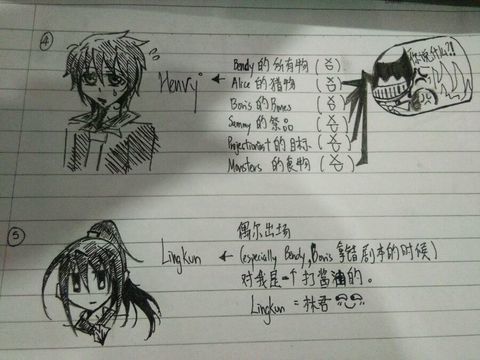 ④
Henry
Bendy 的所有物 (否)
Alice 的猎物 (否)
Boris 的 Bones (否)
Sammy 的祭品 (否)
Projectionist 的目标 (否)
Monsters 的食物 (否)
你说什么?!
⑤
Lingkun
偶尔出场
(especially Bendy, Boris 拿错剧本的时候)
对我是一个打酱油的。
Lingkun = 林君